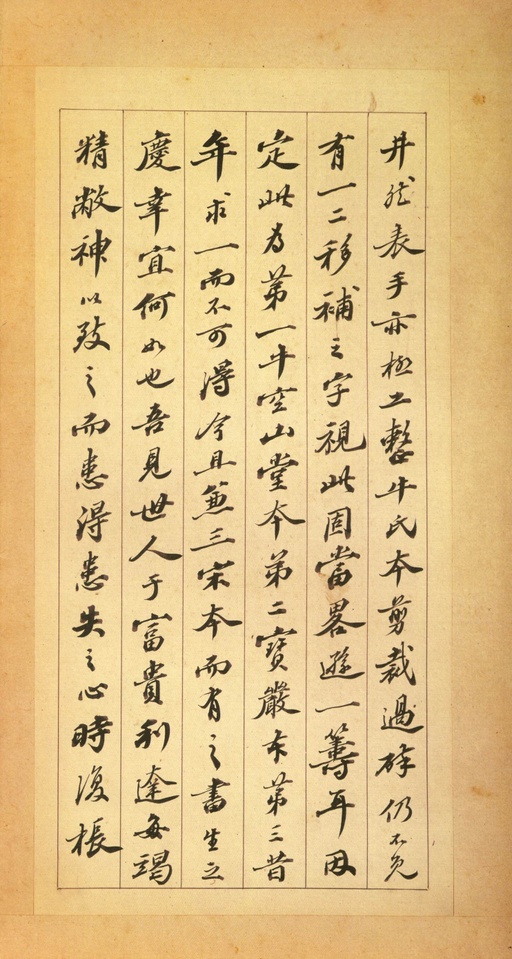 井然表手亦極工整牛氏本剪裁過碎仍不免
有一二移補之字視此固當畧遜一籌耳因
定此為第一牛空山堂本第二寶嚴本第三昔
年求一而不可得今且兼三宋本而有之書生之
慶幸宜何如也吾見世人于富貴利達每竭
精敝神以致之而患得患失之心時復棖